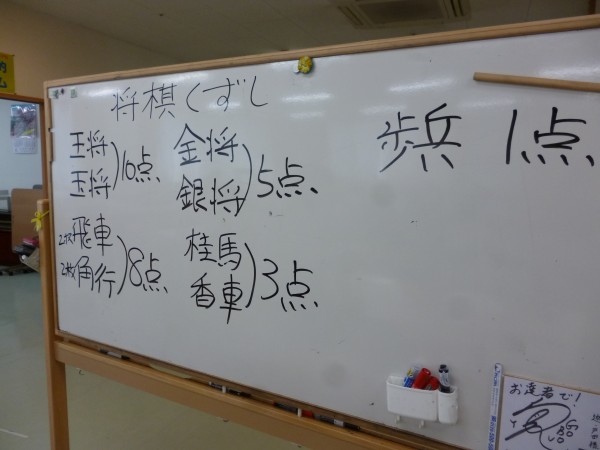 将棋くずし
王将
玉将
10点
金将
銀将
5点
歩兵 1点
2枚飛車
2枚角行
8点
桂馬
香車
3点
お達者で!